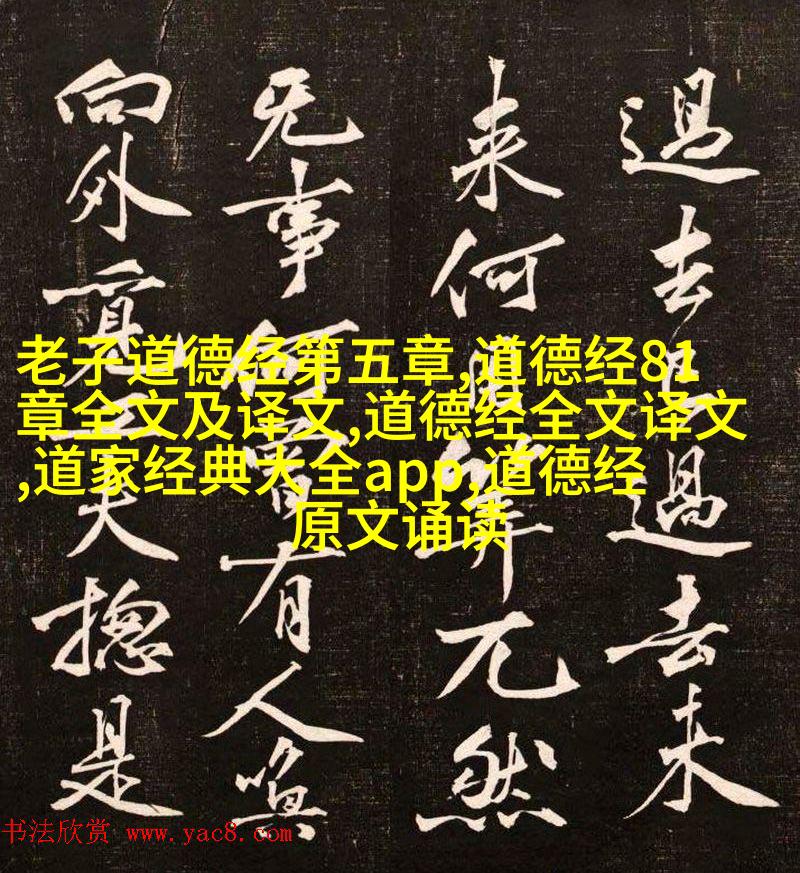 過去已過去未
来何用筭兀然
无事何曾有人喚
向外覓工夫揔是
老子道德经第五章,道德经81
章全文及译文,道德经全文译文
,道家经典大全app,道德经
原文诵读
书法欣赏 www.yac8.com